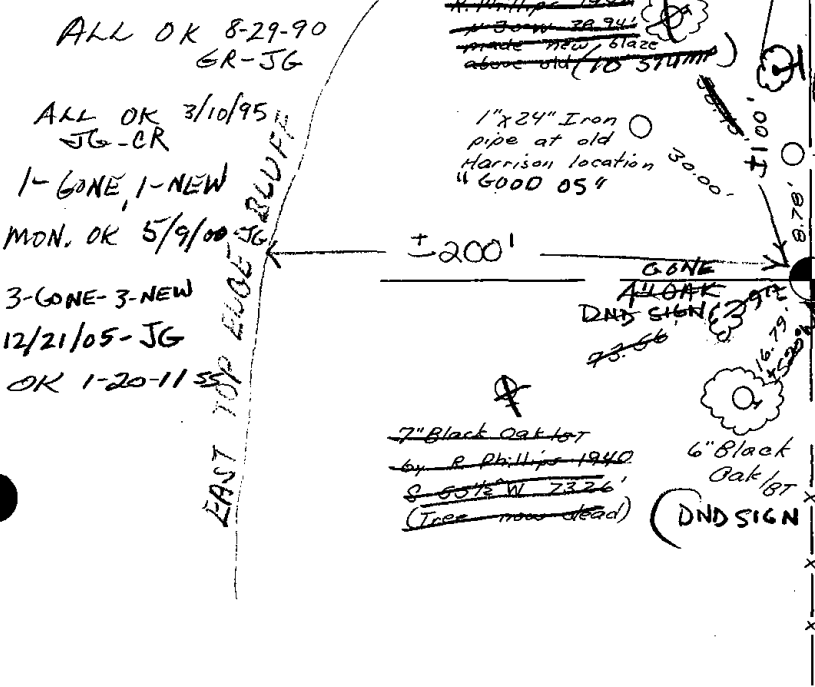 ALL OK 8-29-90
GR-JG
ALL OK 3/10/95
JG-CR
1-GONE, 1-NEW
MON. OK 5/9/00 JG
3-GONE-3-NEW
12/21/05-JG
OK 1-20-11 SS
EAST TOP EDGE BLUFF
R. Phillips 1940
N 30° W 38.94'
made new blaze
above old (10" STUMP)
1"x24" Iron
pipe at old
Harrison location
"GOOD 05"
30.00'
±100'
8.78'
±200'
GONE
4" OAK
DND SIGN
73.66'
16.79'
7" Black Oak/BT
by R Phillips 1940
S 65½° W 73.26'
(Tree now dead)
6" Black
Oak/BT
(DND SIGN